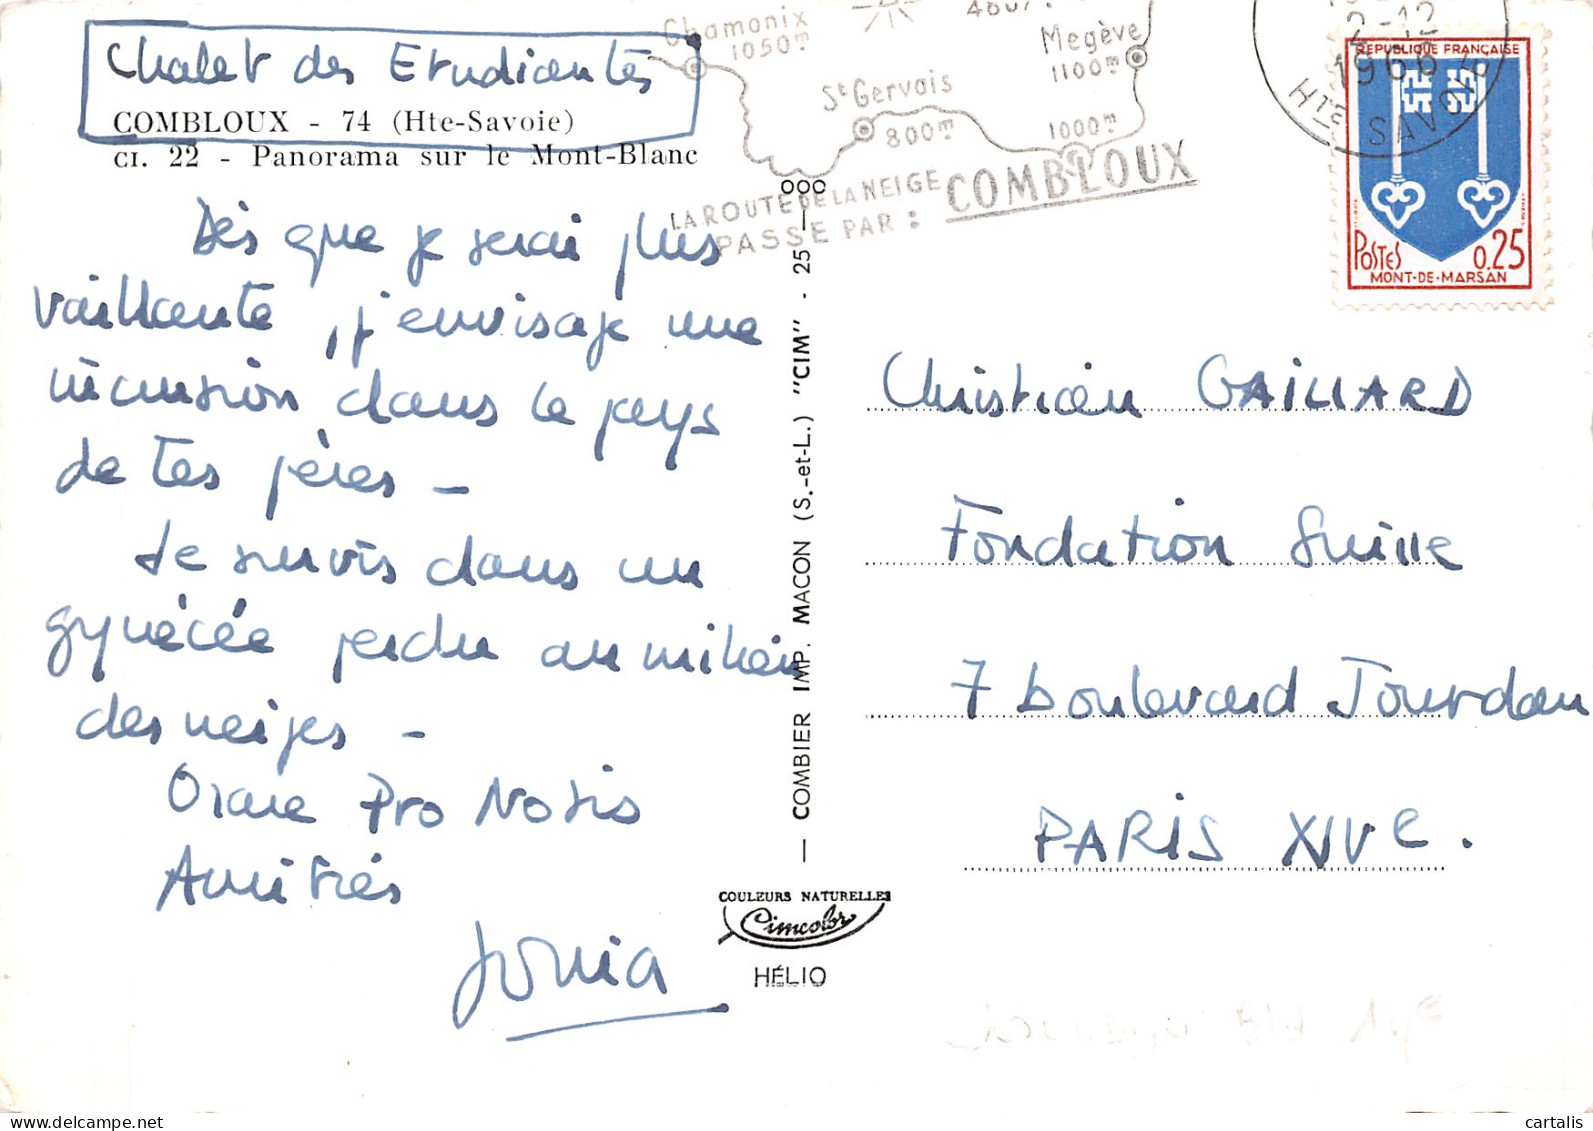 Chalet des Etudiantes
COMBLOUX - 74 (Hte-Savoie)
CI. 22 - Panorama sur le Mont-Blanc
Dès que je serai plus
vaillante, j'envisage une
incursion dans le pays
de tes pères -
Je survis dans un
gynécée perdu au milieu
des neiges -
Orare Pro Nobis
Amitiés
Sonia
Chamonix
1050m
4807
Megève
1100m
St Gervais
800m
1000m
LA ROUTE DE LA NEIGE
PASSE PAR :
COMBLOUX
2-12
1966
HTE SAVOIE
REPUBLIQUE FRANÇAISE
POSTES 0,25
MONT-DE-MARSAN
— COMBIER IMP. MACON (S.-et-L.) "CIM" - 25 —
Christian GAILLARD
Fondation Suisse
7 boulevard Jourdan
PARIS XIVe.
COULEURS NATURELLES
Cimcolor
HÉLIO
delcampe.net
cartalis